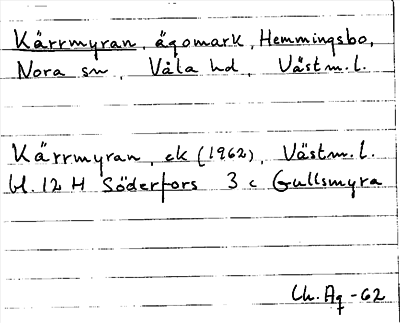 Kärrmyran, ägomark, Hemmingsbo,
Nora sn, Våla hd, Västm.l.
Kärrmyran, ek (1962), Västm.l.
bl. 12 H Söderfors 3 c Gullsmyra
Ch. Ag -62